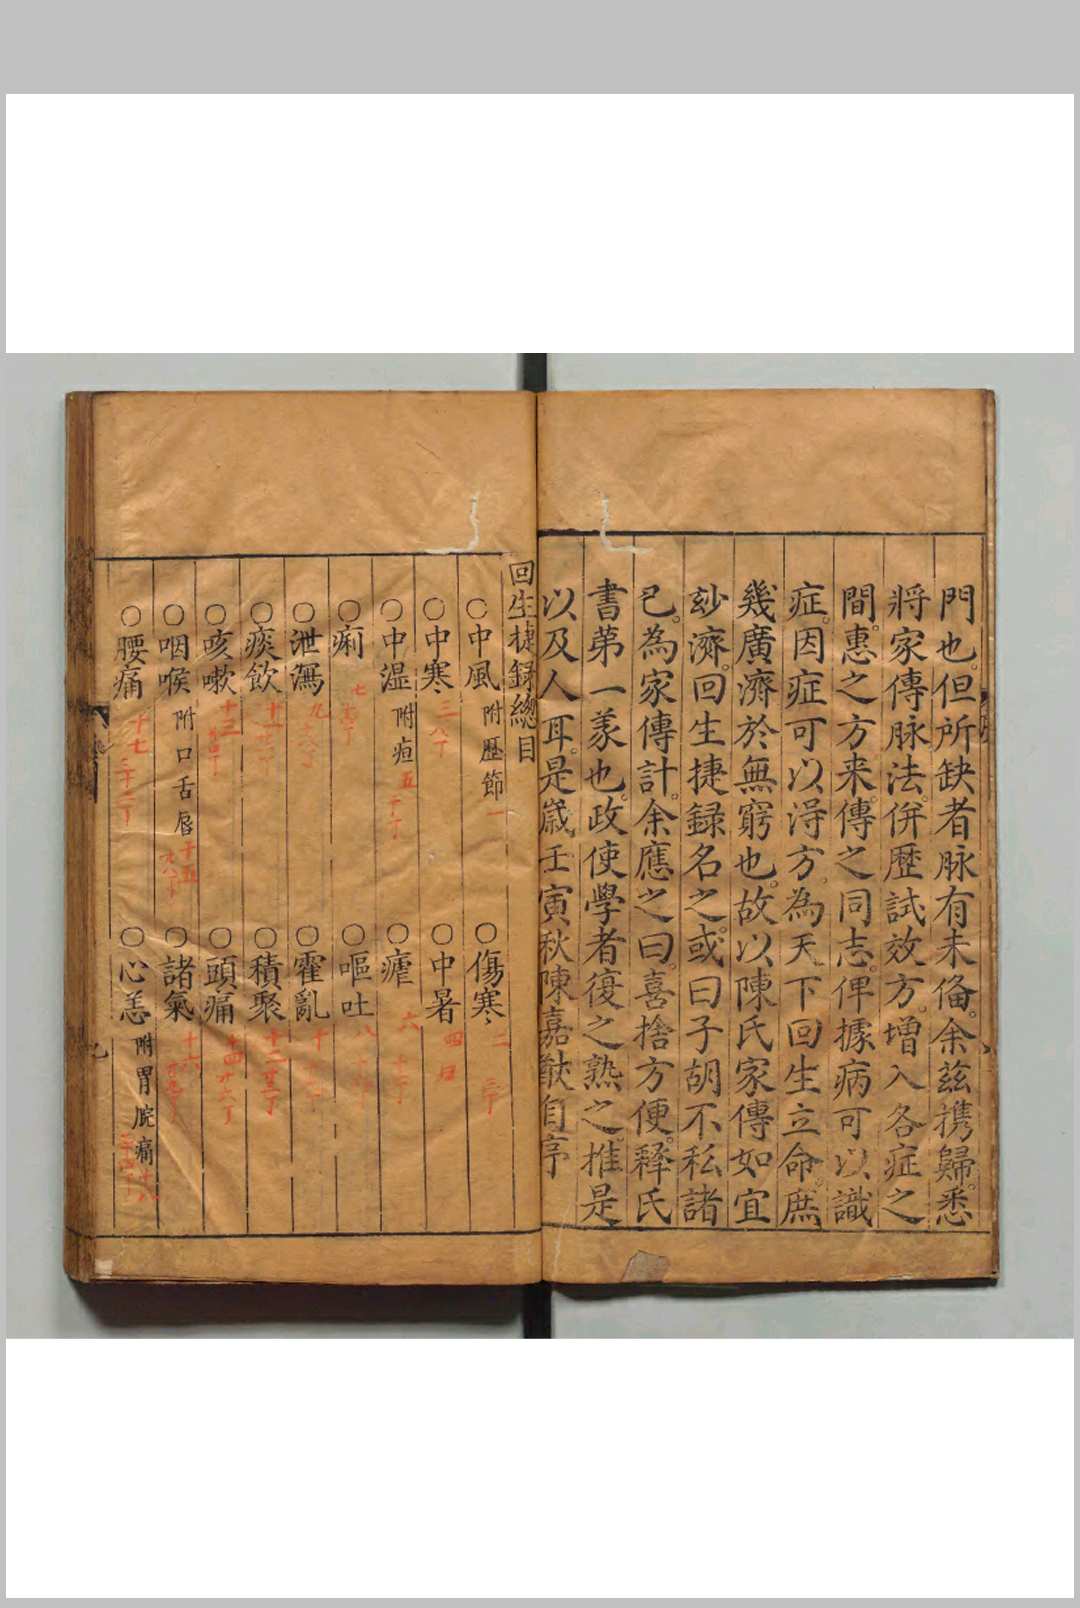 門也。但所缺者脉有未俻。余茲携歸。悉
將家傳脉法。併歷試效方。增入各症之
間。惠之方来。傳之同志。俾據病可以識
症。因症可以淂方。為天下回生立命。庶
幾廣濟於無窮也。故以陳氏家傳如宜
玅濟。回生捷録名之。或曰子胡不私諸
已。為家傳計。余應之曰。喜捨方便。釋氏
書第一義也。政使學者復之熟之。推是
以及人耳。是歲壬寅秋陳嘉猷自序
回生捷録總目
○中風 附歷節 一 ○傷寒 二
○中寒 三 八丁 ○中暑 四
○中湿 附疸 五 ○瘧 六
○痢 七 ○嘔吐 八
○泄瀉 九 ○霍亂 十
○痰飲 十一 ○積聚 十二
○咳嗽 十三 ○頭痛 十四 廿六丁
○咽喉 附口舌唇 十五 ○諸氣 十六
○腰痛 十七 ○心恙 附胃脘痛 十八